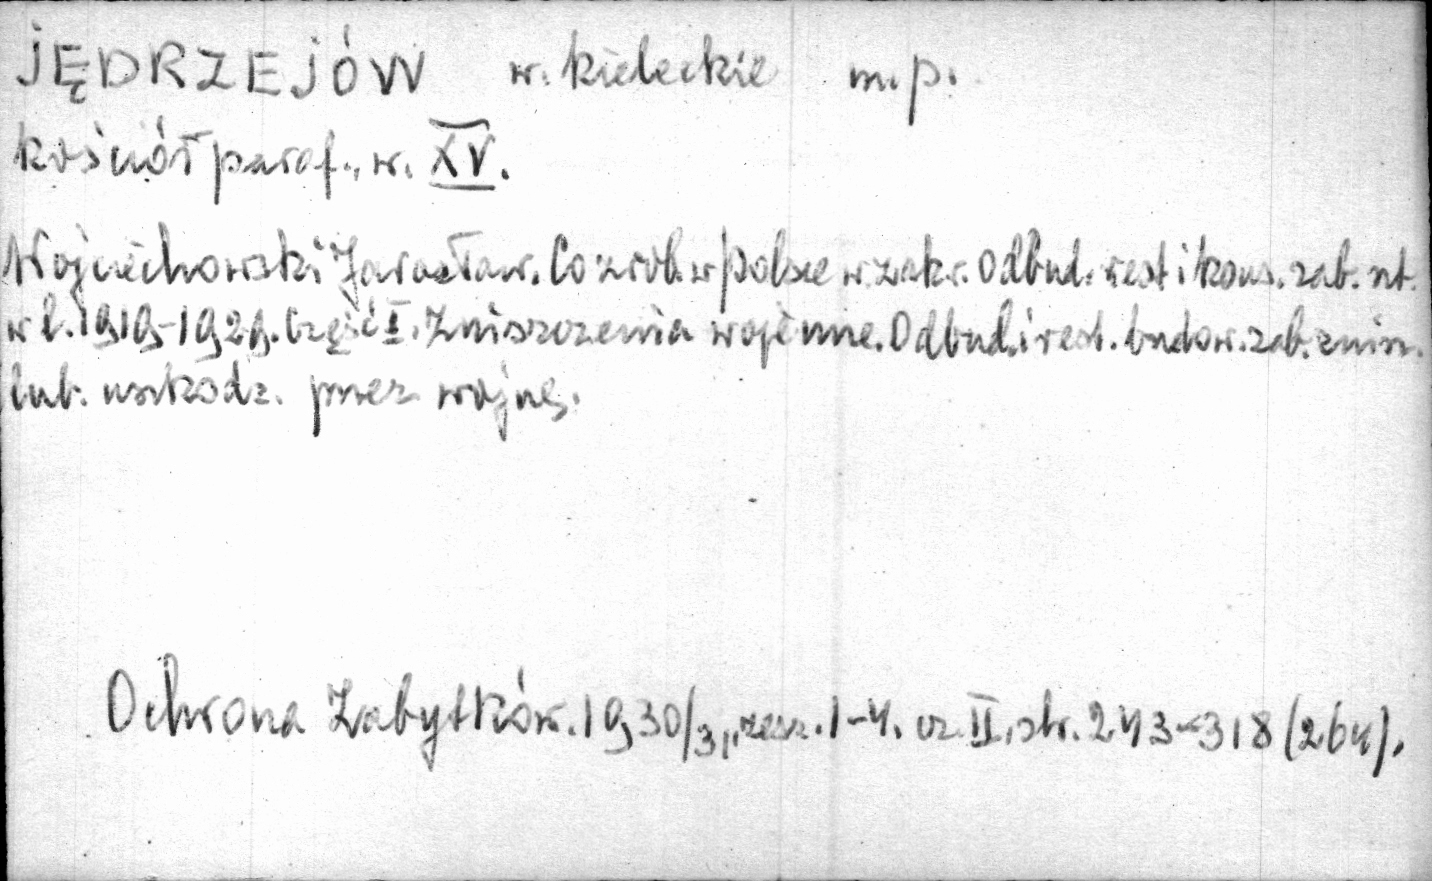 JĘDRZEJÓW w. kieleckie m.p.
kościół paraf., w. XV.
Wojciechowski Jarosław. Co zrob. w Polsce w zakr. Odbud. rest i kons. zab. szt.
w l. 1919-1929. Część I. Zniszczenia wojenne. Odbud. i rest. budow. zab. znisz.
lub. uszkodz. przez wojnę.
Ochrona Zabytków. 1930/3, zesz. 1-4. cz. II, str. 243-318 (264).